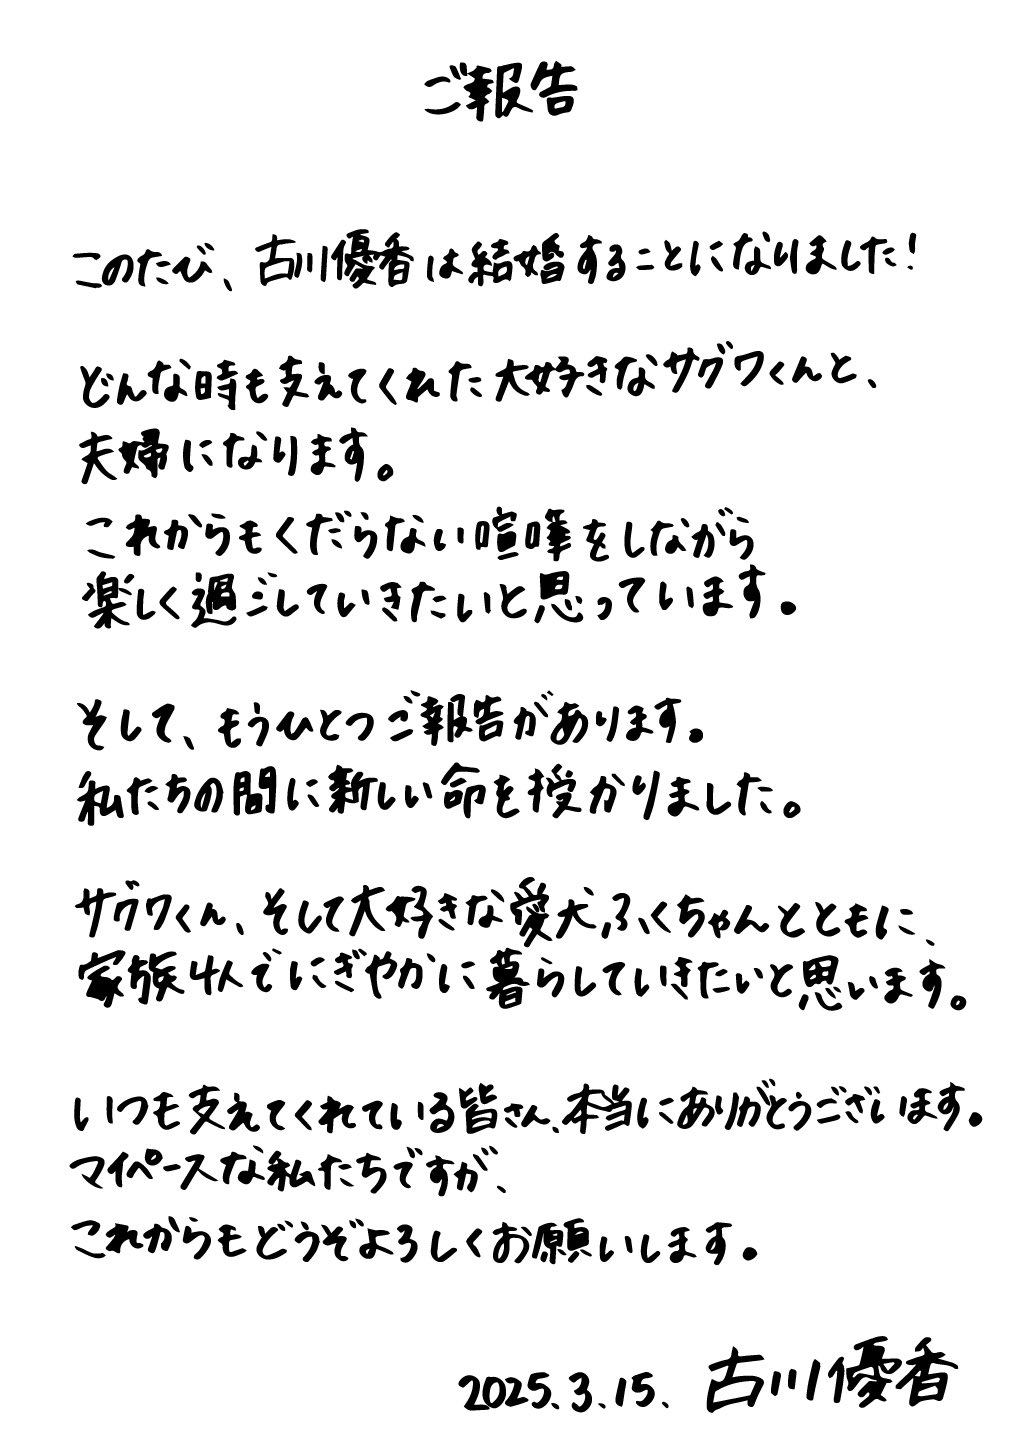 ご報告
このたび、古川優香は結婚することになりました!
どんな時も支えてくれた大好きなサグワくんと、
夫婦になります。
これからもくだらない喧嘩をしながら
楽しく過ごしていきたいと思っています。
そして、もうひとつご報告があります。
私たちの間に新しい命を授かりました。
サグワくん、そして大好きな愛犬ふくちゃんとともに、
家族4人でにぎやかに暮らしていきたいと思います。
いつも支えてくれている皆さん、本当にありがとうございます。
マイペースな私たちですが、
これからもどうぞよろしくお願いします。
2025.3.15. 古川優香